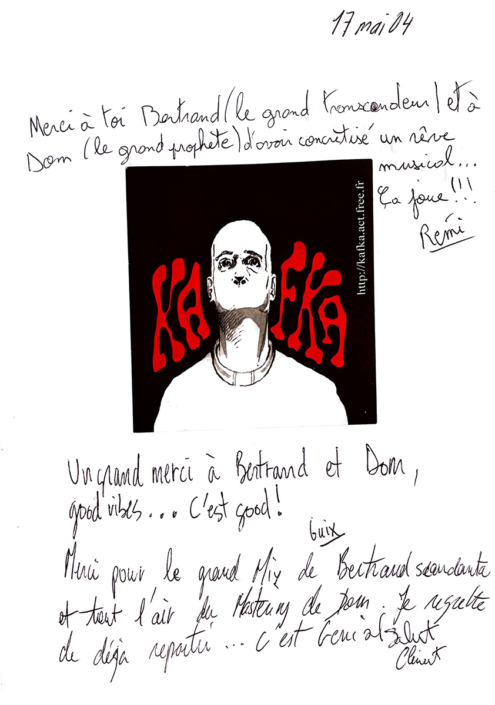 17 mai 04
Merci à toi Bertrand (le grand transcendeur) et à
Dom (le grand prophète) d'avoir concrétisé un rêve
musical...
Ça joue!!!
Rémi
http://kafka.act.free.fr
KAFKA
Un grand merci à Bertrand et Dom,
good vibes... C'est good!
Guix
Merci pour le grand Mix de Bertrand
et tout l'air du Mastering de Dom. Je regrette
de déjà repartir... C'est Génial Salut
Clément